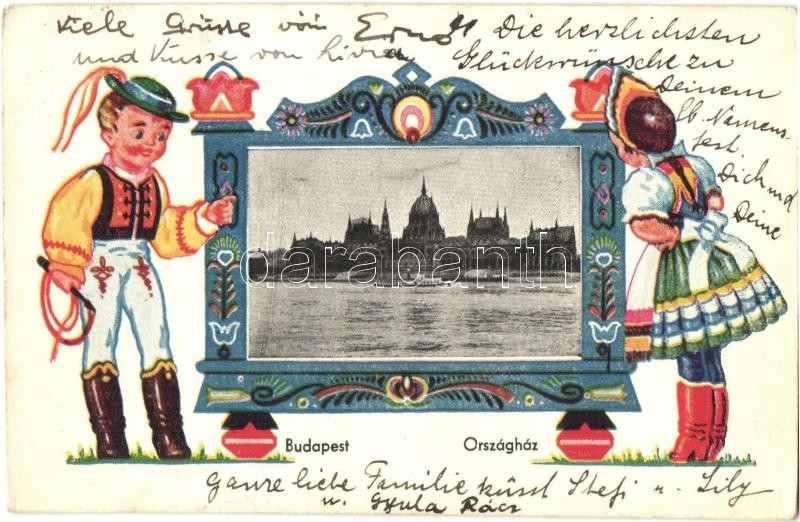 Viele Grüsse von Ernö
und Küsse von Livia
Die herzlichsten
Glückwünsche zu
Deinem
lb. Namens-
fest.
Dich und
Deine
darabanth
Budapest Országház
ganze liebe Familie küsst Stefi u. Lily
u. Gyula Rácz